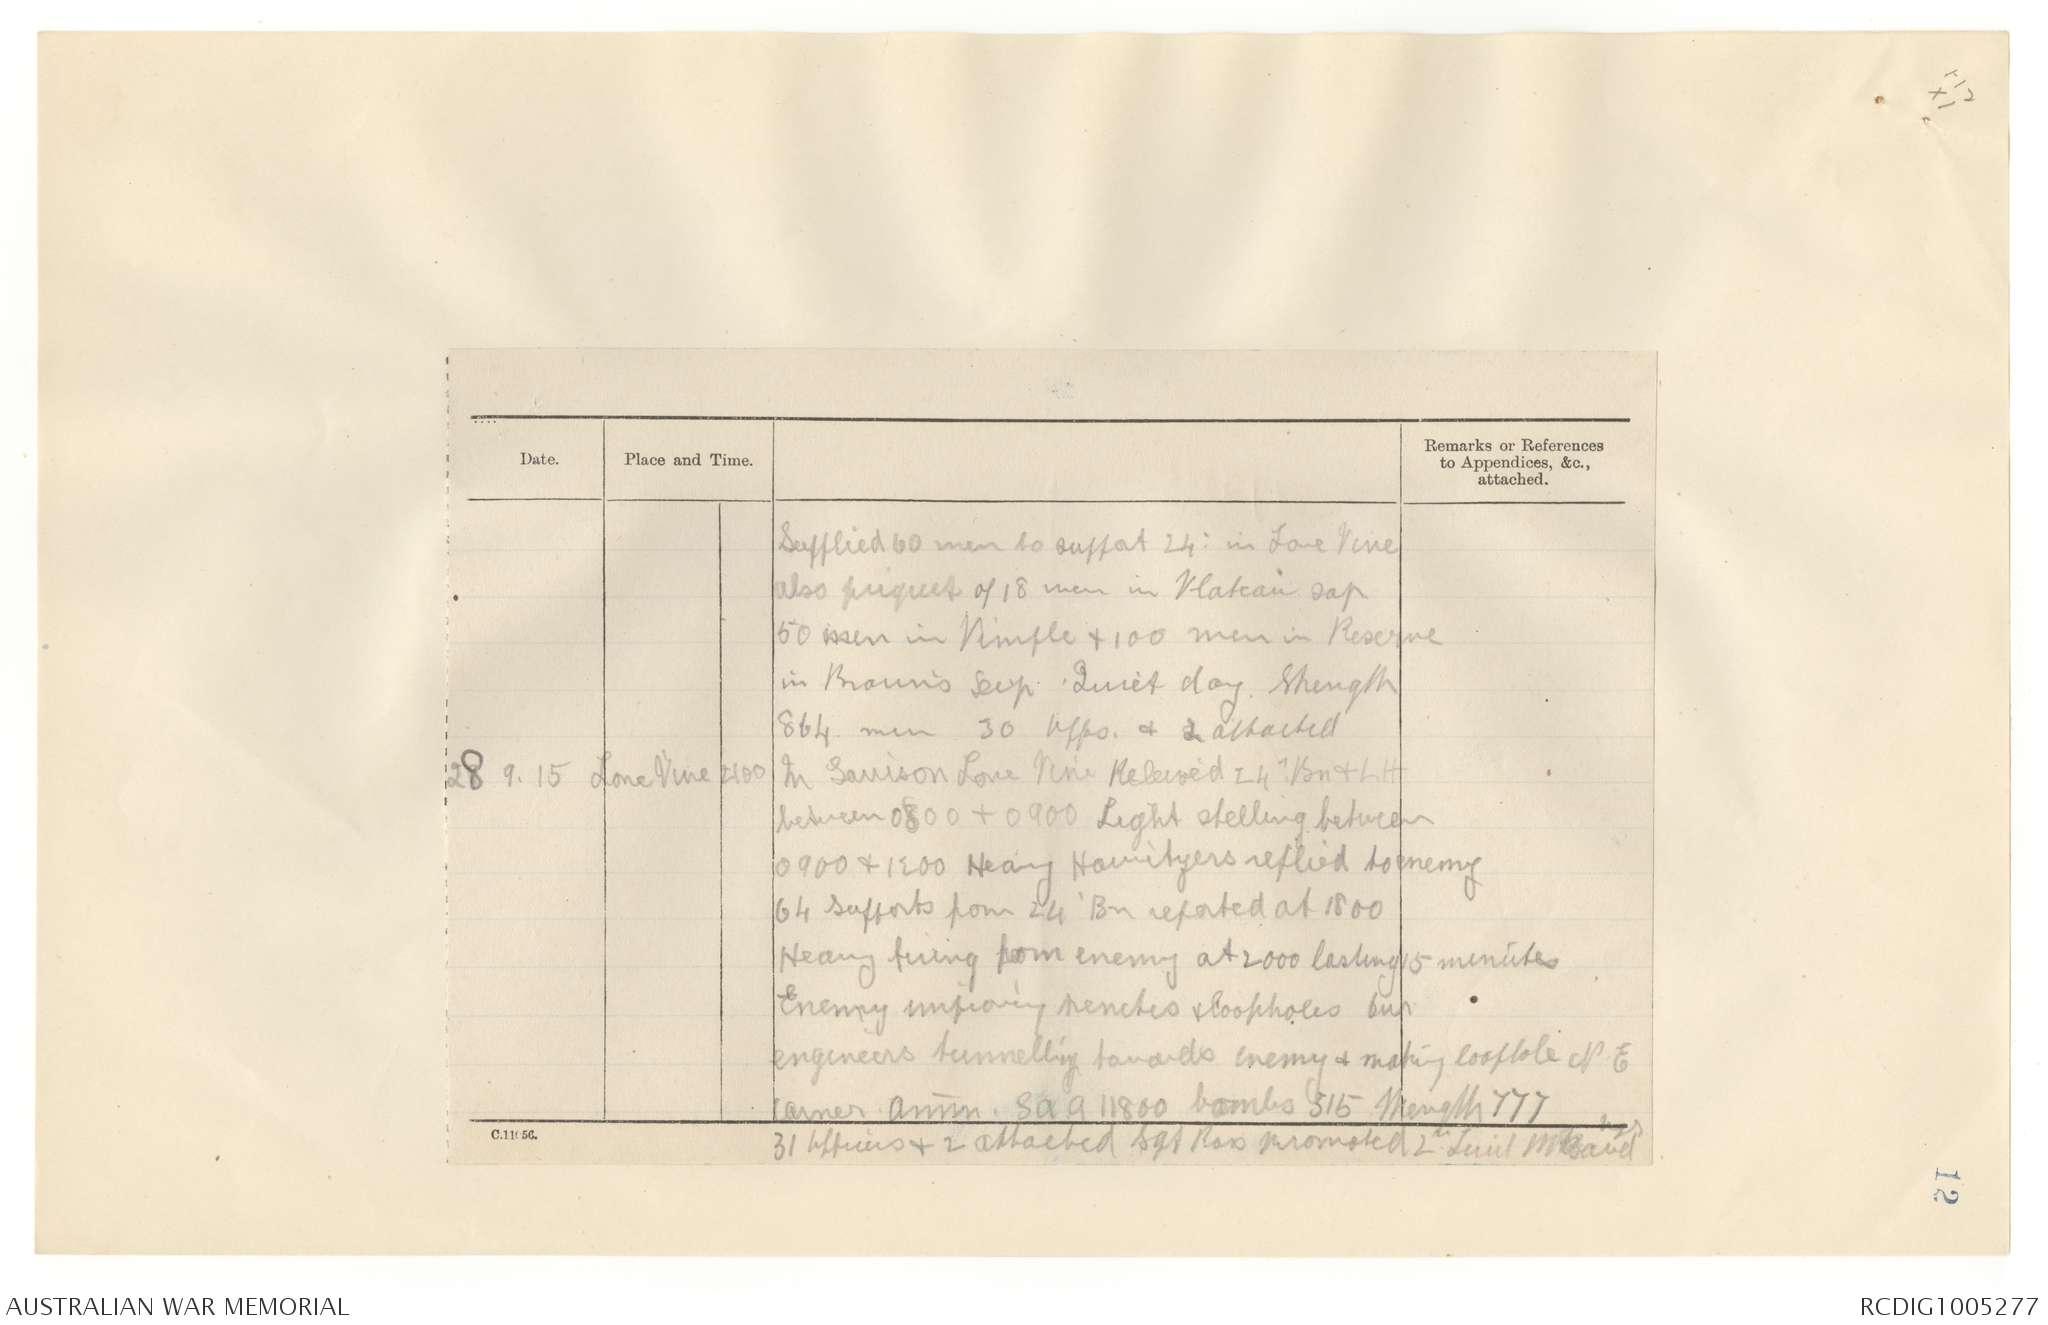 12
Date.
Place and Time.
Remarks or References
to Appendices, &c.,
attached.
Supplied 60 men to support 24th in Lone Pine
also piquet of 18 men in Plateau sap
50 men in Pimple + 100 men in Reserve
in Brown's Sap. Quiet day. Strength
864 men 30 Offrs. & 2 attached
28 9. 15 Lone Pine 2400 In Garrison Lone Pine Relieved 24th Bn + L H
between 0800 + 0900 Light shelling between
0900 + 1200 Heavy Howitzers replied to enemy
64 supports from 24th Bn reported at 1800
Heavy firing from enemy at 2000 lasting 15 minutes
Enemy improving trenches & loopholes our
engineers tunnelling towards enemy & making loophole N. E
corner. Ammn. S A A 11800 bombs 515 Strength 777
31 Officers + 2 attached Sgt promoted 2nd Lieut
C.11056.
12
AUSTRALIAN WAR MEMORIAL
RCDIG1005277